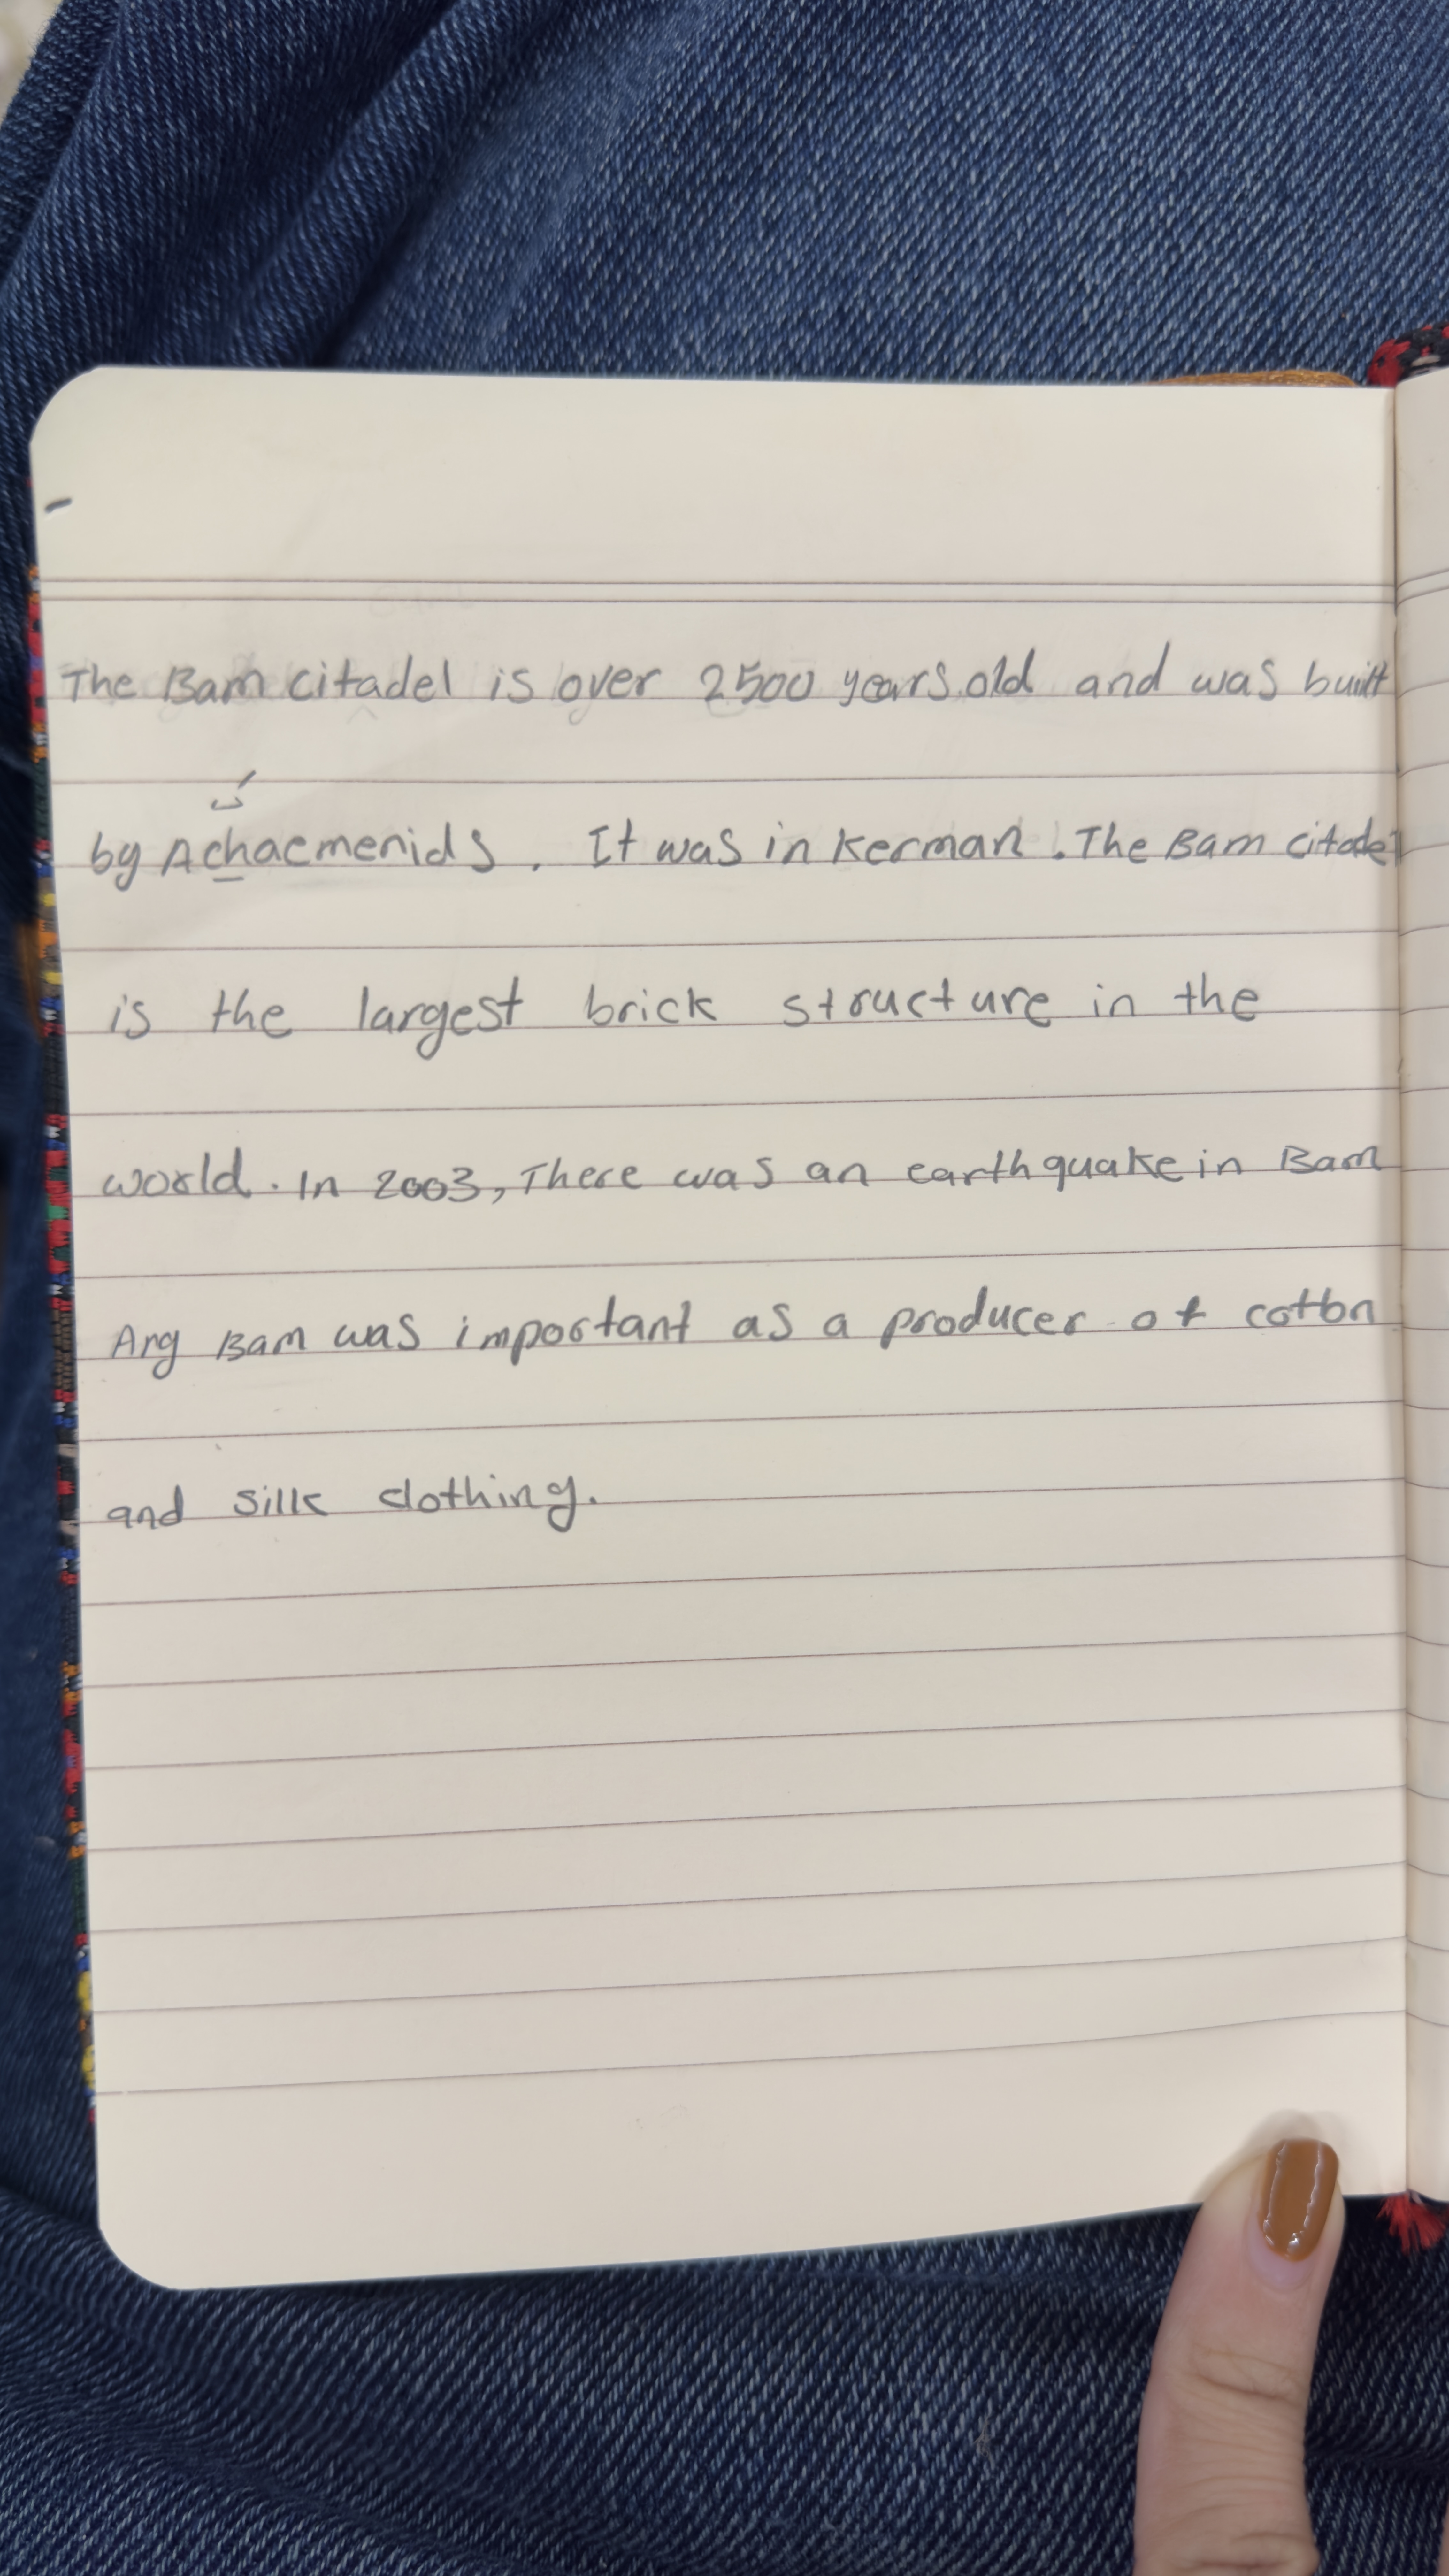 The Bam citadel is over 2500 years old and was built
ک
by Achaemenids. It was in Kerman. The Bam citadel
is the largest brick structure in the
world. In 2003, There was an earthquake in Bam
Arg Bam was important as a producer of cotton
and silk clothing.